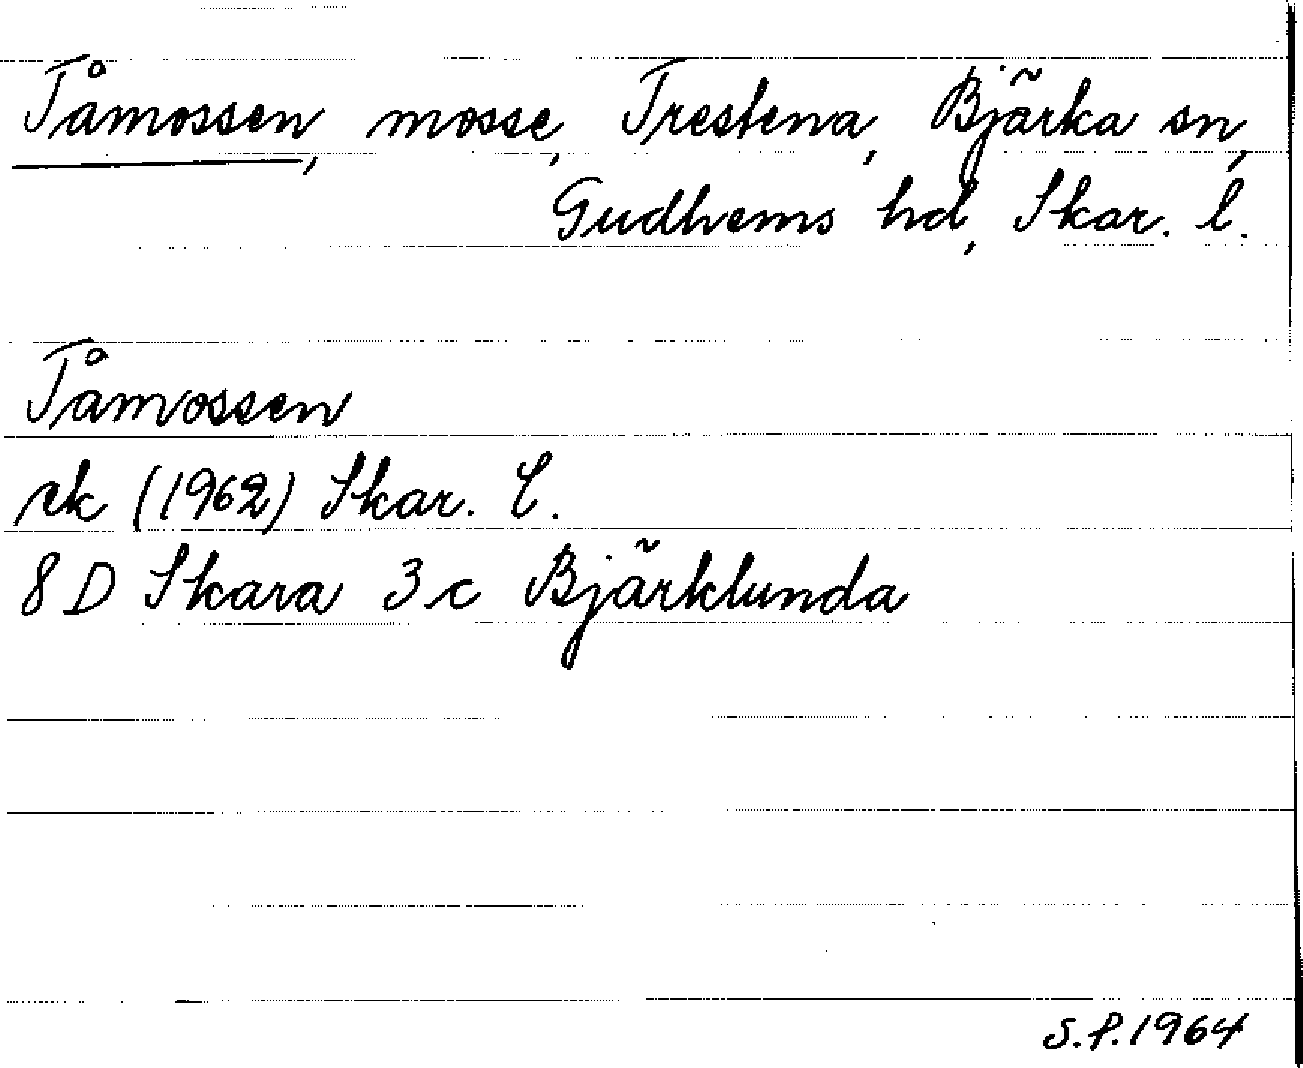 Tåmossen, mosse, Trestena, Bjärka sn,
Gudhems hd, Skar. l.
Tåmossen
ek (1962) Skar. l.
8 D Skara 3 c Bjärklunda
S.P. 1964